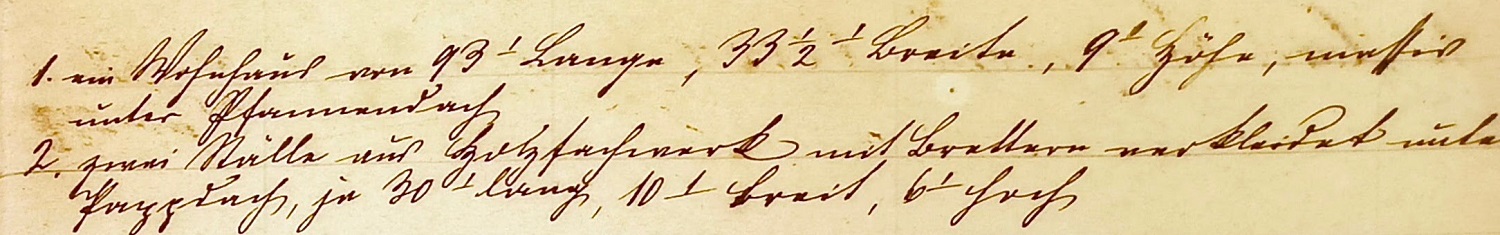 1. ein Wohnhaus von 93' Lange, 33 1/2' Breite, 9' Höhe, massiv
unter Pfannendach
2. zwei Ställe aus Holzfachwerk mit Brettern verkleidet unte
Pappdach, je 30' lang, 10' breit, 6' hoch